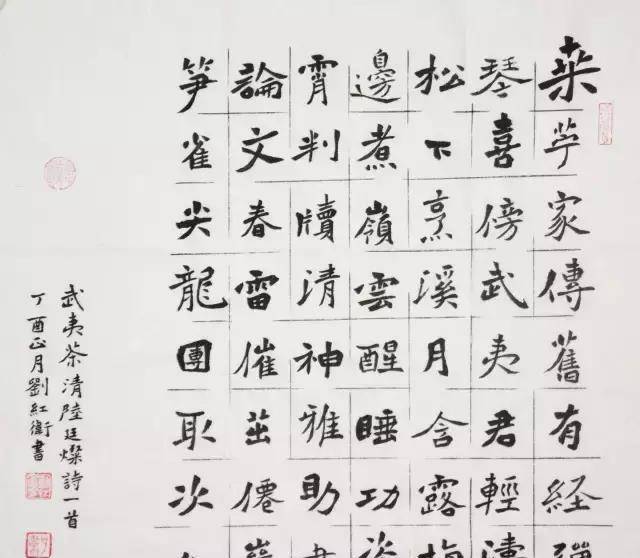 桒苧家傳舊有経
琴喜傍武夷君輕
松下烹溪月含露
邊煮嶺雲醒睡功
宵判牘清神雅助
論文春雷催茁僊
笋雀尖龍團取次
武夷茶清陸廷燦詩一首
丁酉正月劉紅衛書